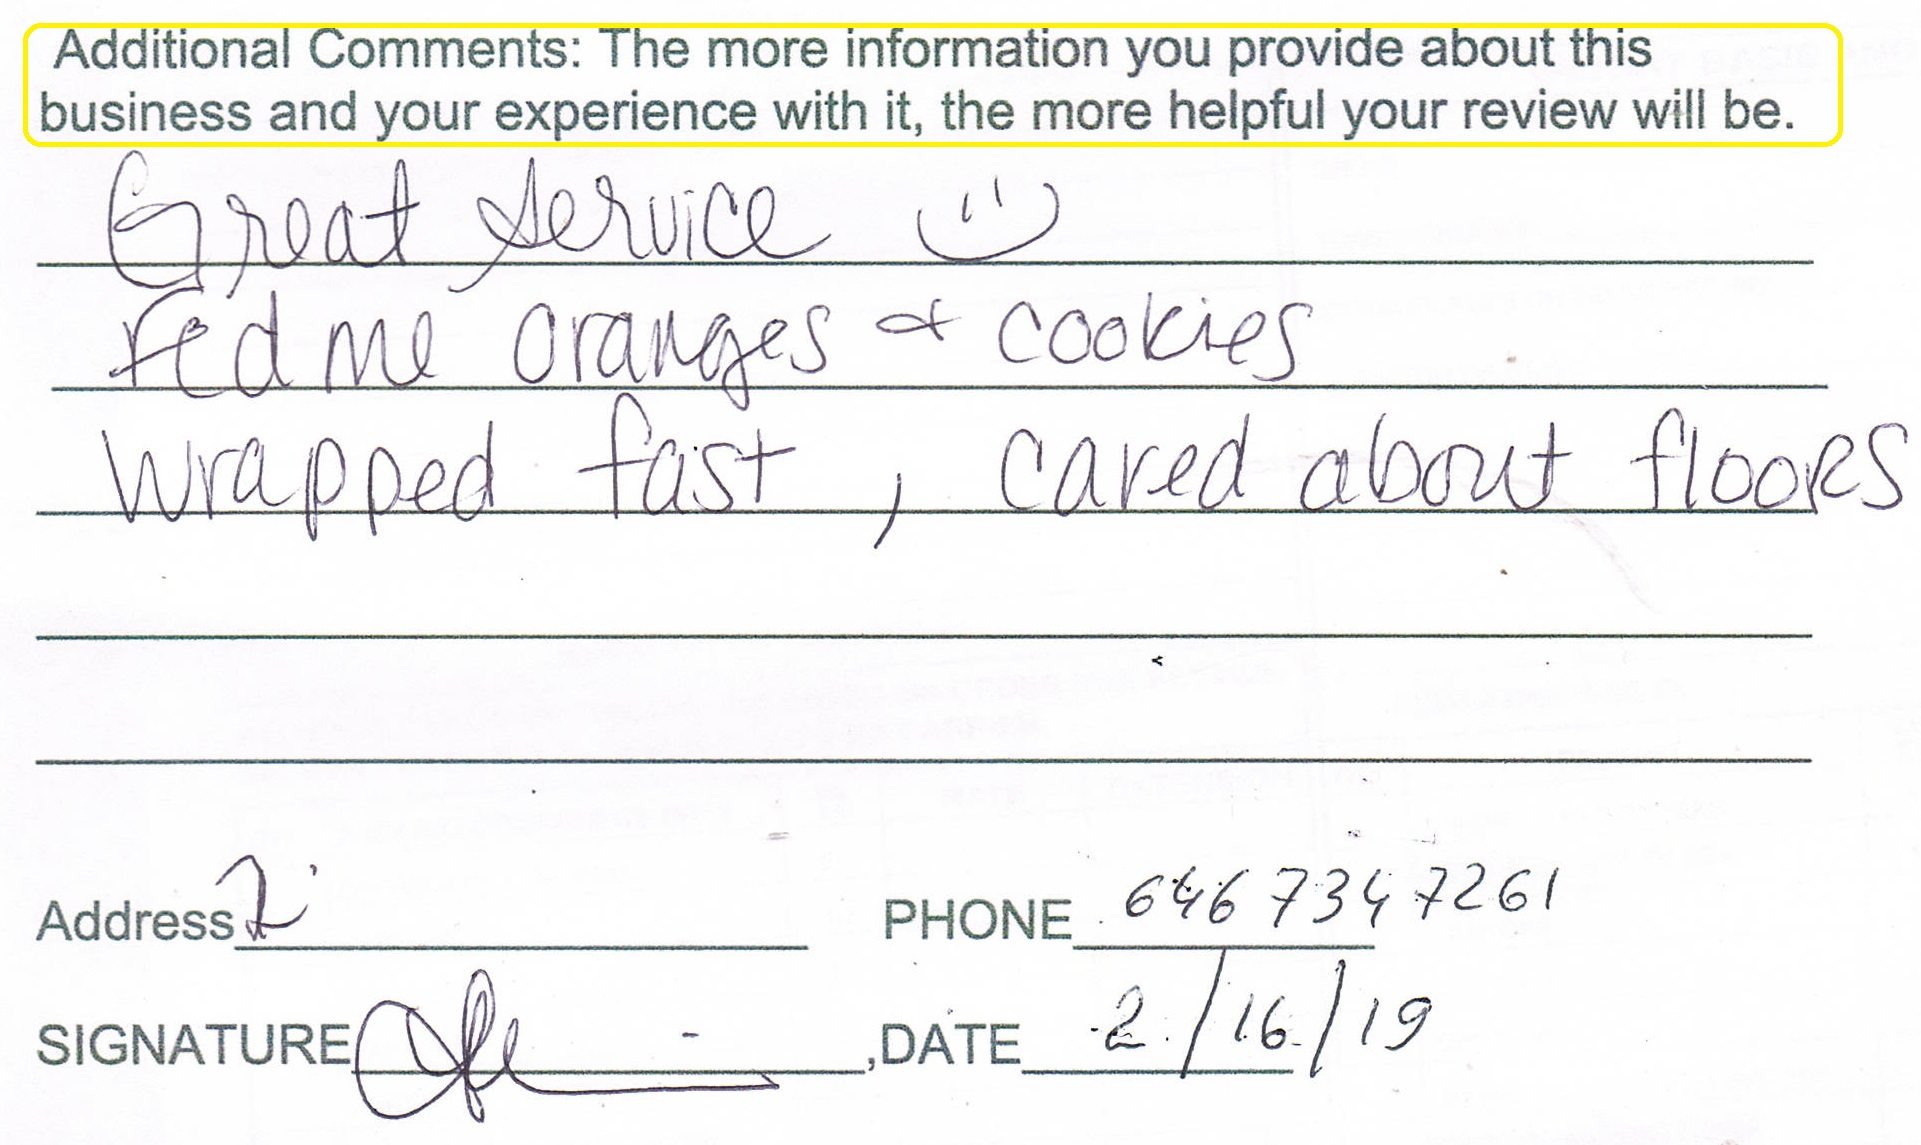 Additional Comments: The more information you provide about this
business and your experience with it, the more helpful your review will be.
Great service
Fed me oranges & cookies
wrapped fast, cared about floors
Address
PHONE 646 734 7261
SIGNATURE ,DATE 2/16/19